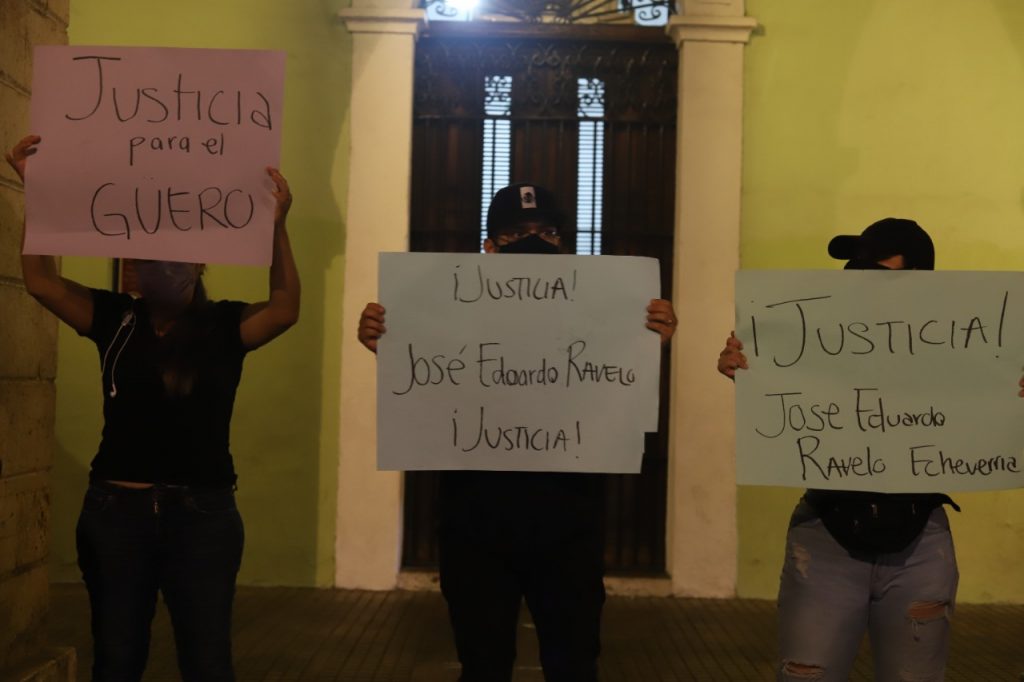 Justicia
para el
GÜERO
¡JUSTICIA!
José Edoardo RAVELO
¡JUSTICIA!
¡JUSTICIA!
JOSE EDUARDO
RAVELO ECHEVERRIA